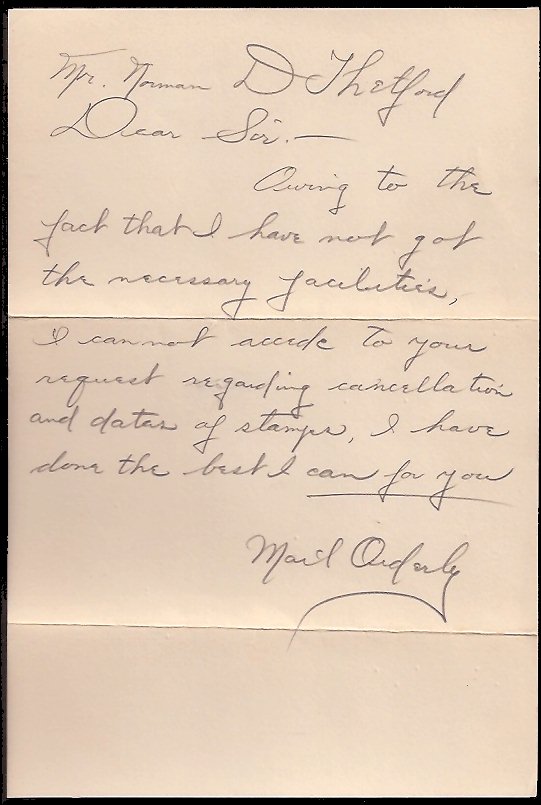 Mr. Norman D Thetford
Dear Sir. —
Owing to the
fact that I have not got
the necessary facilities,
I cannot accede to your
request regarding cancellation
and dates of stamps, I have
done the best I can for you
Mail Orderly